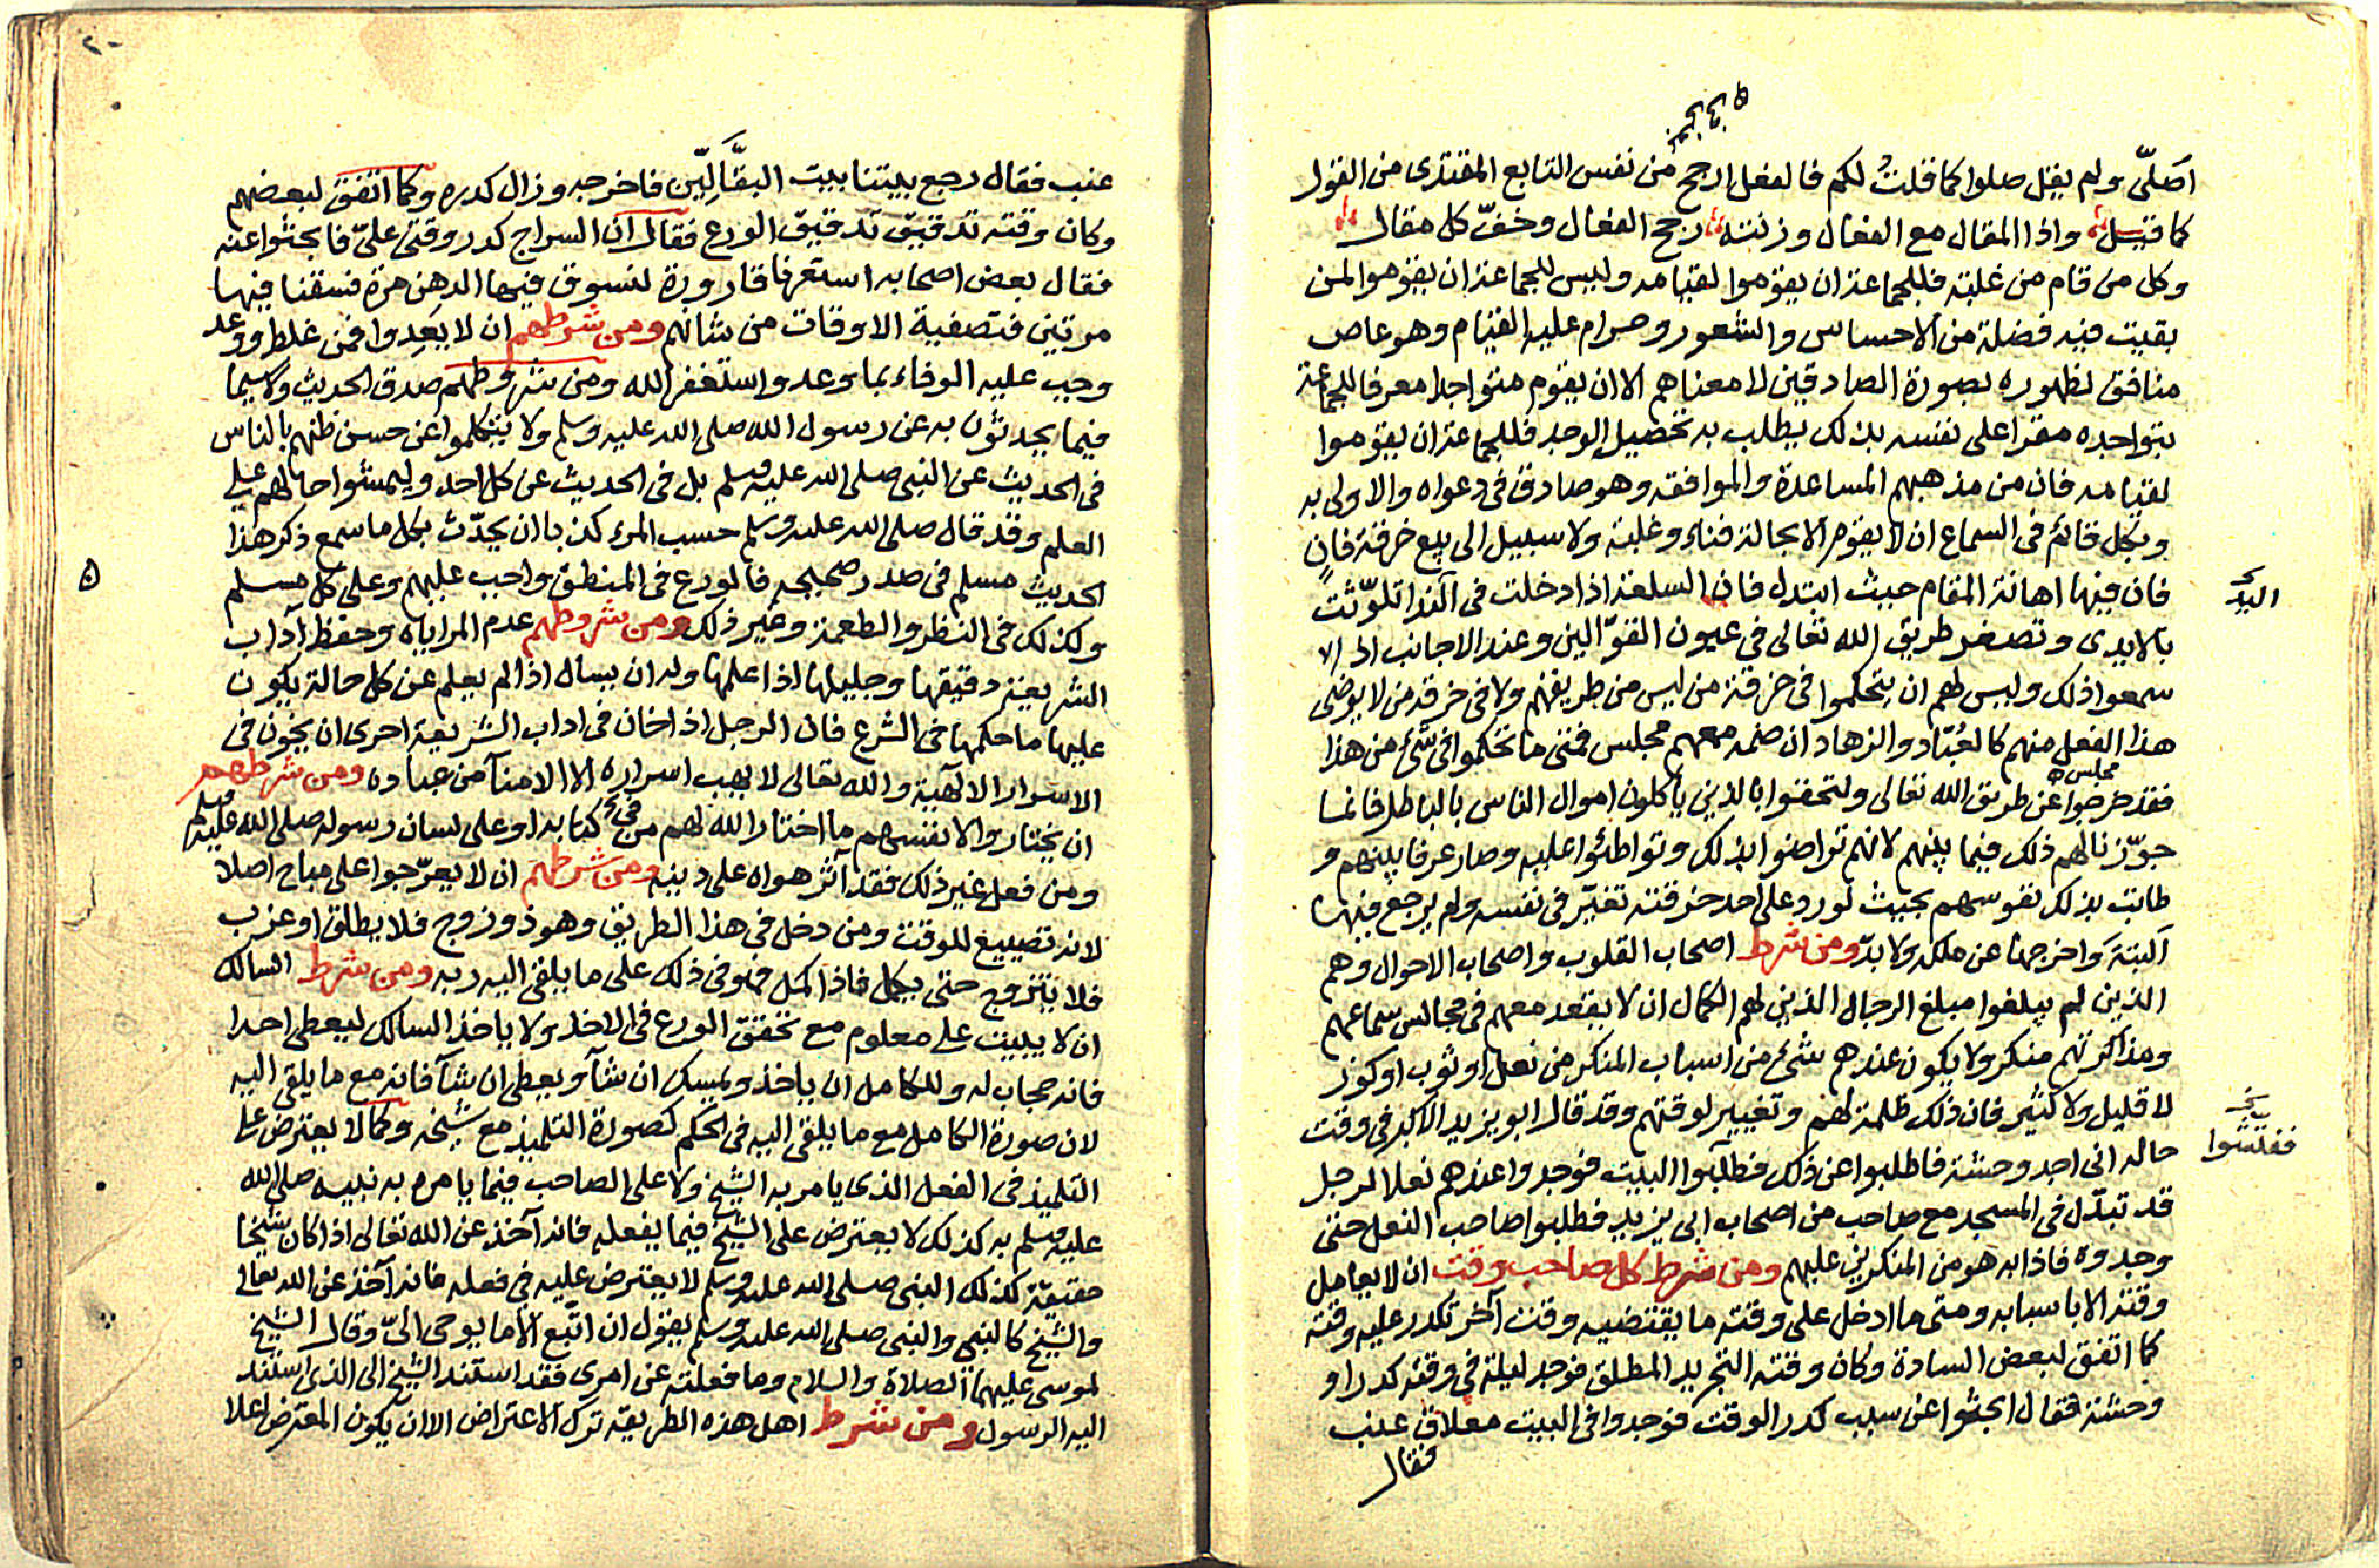 أصلّي ولم يقل صلوا كما قلت لكم فالفعل ارجح من نفس التابع المقتدى من القول
كما قيل واذا المقال مع الفعال وزنته رجح الفعال وخفّ كل مقال
وكل من قام من غلبة فللجماعة ان يقوموا لقيامه وليس للجماعة ان يقوموا لمن
بقيت فيه فضلة من الاحساس والشعور وحرام عليه القيام وهو عاص
منافق لظهوره بصورة الصادقين لا معناهم الا ان يقوم متواجدا معرفا للجماعة
بتواجده مقرا على نفسه بذلك يطلب به تحصيل الوجد فللجماعة ان يقوموا
لقيامه فان من مذهبهم المساعدة والموافقة وهو صادق في دعواه والاولى به
وبكل قائم في السماع ان لا يقوم الا بحالة فناء وغلبة ولا سبيل الى بيع خرقة فان
فان فيها اهانة المقام حيث ابتدله فان السلعة اذا دخلت في النداء تلوّثت
اليد
بالايدى وتصغر طريق الله تعالى في عيون القوّالين وعند الاجانب اذا
سمعوا ذلك وليس لهم ان يتحكموا في خرقة من ليس من طريقهم ولا في خرقة من لا يرضى
هذا الفعل منهم كالعُبّاد والزهاد ان ضمه معهم مجلس فمتى ما تحكموا في شئ من هذا
مجلس
فقد خرجوا عن طريق الله تعالى ولتحقوا بالذين ياكلون اموال الناس بالباطل فانما
جوّزنا لهم ذلك فيما بينهم لانهم تراضوا بذلك وتواطئوا عليه وصار عرفا بينهم و
طابت بذلك نفوسهم بحيث لو رد على احد خرقته تغيّر في نفسه ولم يرجع فيها
البتة واخرجها عن ملكه ولا بدّ ومن شرط اصحاب القلوب واصحاب الاحوال وهم
الذين لم يبلغوا مبلغ الرجال الذين لهم الكمال ان لا يقعد معهم في مجالس سماعهم
ومذاكرتهم منكر ولا يكون عندهم شئ من اسباب المنكر من نعل او ثوب او كوز
لا قليل ولا كثير فان ذلك ظلمة لهم وتغيير لوقتهم وقد قال ابو يزيد الاكبر في وقت
حاله انى اجد وحشة فاطلبوا عن ذلك فطلبوا البيت فوجدوا عندهم نعلا لرجل
ففلسوا
قد تبدّل في المسجد مع صاحب من اصحاب ابى يزيد فطلبوا صاحب النعل حتى
وجدوه فاذا به هو من المنكرين عليهم ومن شرط كل صاحب وقت ان لا يعامل
وقته الا باسبابه ومتى ما ادخل على وقته ما يقتضيه وقت آخر تكدر عليه وقته
كما اتفق لبعض السادة وكان وقته التجريد المطلق فوجد ليلة في وقته كدرا و
وحشة فقال ابحثوا عن سبب كدر الوقت فوجدوا في البيت معلاق عنب
فقال
عنب فقال رجع بيتنا بيت البقّالين فاخرجه وزال كدره وكما اتفق لبعضهم
وكان وقته تدقيق تدقيق الورع فقال ان السراج كدر وقتى علىّ فابحثوا عنه
فقال بعض اصحابه استعرنا قارورة لنسوق فيها الدهن مرة فسقنا فيها
مرتين فتصفية الاوقات من شانهم ومن شرطهم ان لا يَعِدوا فمن غلط ووعد
وجب عليه الوفاء بما وعد واستغفر الله ومن شروطهم صدق الحديث ولاسيما
فيما يحدثون به عن رسول الله صلى الله عليه وسلم ولا يتكلموا عن حسن ظنهم بالناس
في الحديث عن النبى صلى الله عليه وسلم بل في الحديث عن كل احد وليمشوا حالهم على
العلم وقد قال صلى الله عليه وسلم حسب المرء كذبا ان يحدّث بكل ما سمع ذكر هذا
الحديث مسلم في صدر صحيحه فالورع في المنطق واجب عليهم وعلى كل مسلم
٥
وكذلك في النظر والطعمة وغير ذلك ومن شروطهم عدم المراياه وحفظ آداب
الشريعة دقيقها وجليلها اذا علمها وله ان يسال اذا لم يعلم عن كل حالة يكون
عليها ما حكمها في الشرع فان الرجل اذا خان في اداب الشريعة احرى ان يخون في
الاسرار الالهية والله تعالى لا يهب اسراره الا الامنآ من عباده ومن شرطهم
ان يختاروا لانفسهم ما اختار الله لهم من في كتابه او على لسان رسوله صلى الله عليه وسلم
ومن فعل غير ذلك فقد آثر هواه على دينه ومن شرطهم ان لا يعرّجوا على مباح اصلا
لانه تضييع للوقت ومن دخل في هذا الطريق وهو ذو زوج فلا يطلق او عزب
فلا يتزوج حتى يكمل فاذا اكمل فهو في ذلك على ما يلقى اليه ربه ومن شرط السالك
ان لا يبيت على معلوم مع تحقق الورع في الاخذ ولا ياخذ السالك ليعطى احدا
فانه حجاب له وللكامل ان ياخذ ويمسك ان شآ ويعطى ان شآ فانه مع ما يلقى اليه
لان صورة الكامل مع ما يلقى اليه في الحكم كصورة التلميذ مع شيخه وكما لا يعترض على
التلميذ في الفعل الذى يامر به الشيخ ولا على الصاحب فيما يامره به نبيه صلى الله
عليه وسلم به كذلك لا يعترض على الشيخ فيما يفعله فانه آخذ عن الله تعالى اذا كان شيخا
حقيقة كذلك النبى صلى الله عليه وسلم لا يعترض عليه في فعله فانه آخذ عن الله تعالى
والشيخ كالنبى والنبى صلى الله عليه وسلم يقول ان اتّبع الا ما يوحى الىّ وقال الشيخ
لموسى عليهما الصلاة والسلام وما فعلته عن امرى فقد استند الشيخ الى الذى استند
اليه الرسول ومن شرط اهل هذه الطريقة ترك الاعتراض الا ان يكون المعترض اعلا